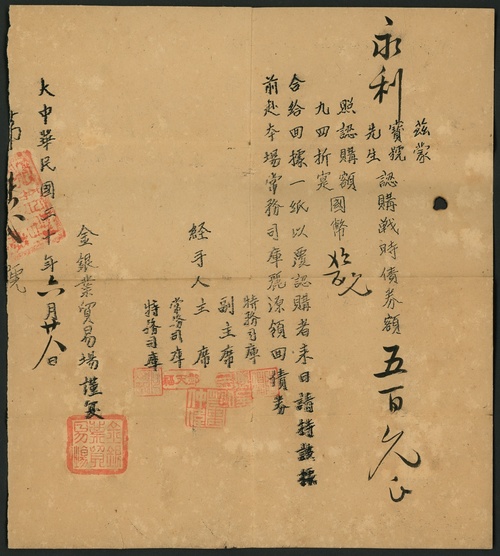 茲蒙
永利 寶號 先生 認購戰時債券額五百元正
照認購額
九四折寔國幣
合給回據一紙以覆認購者来日請持該據
前赴本場常務司庫麗源領回債券
經手人
主席
副主席
特務司庫
常務司庫
特務司庫
金銀業貿易場謹宴
大中華民國三十年六月廿八日
號